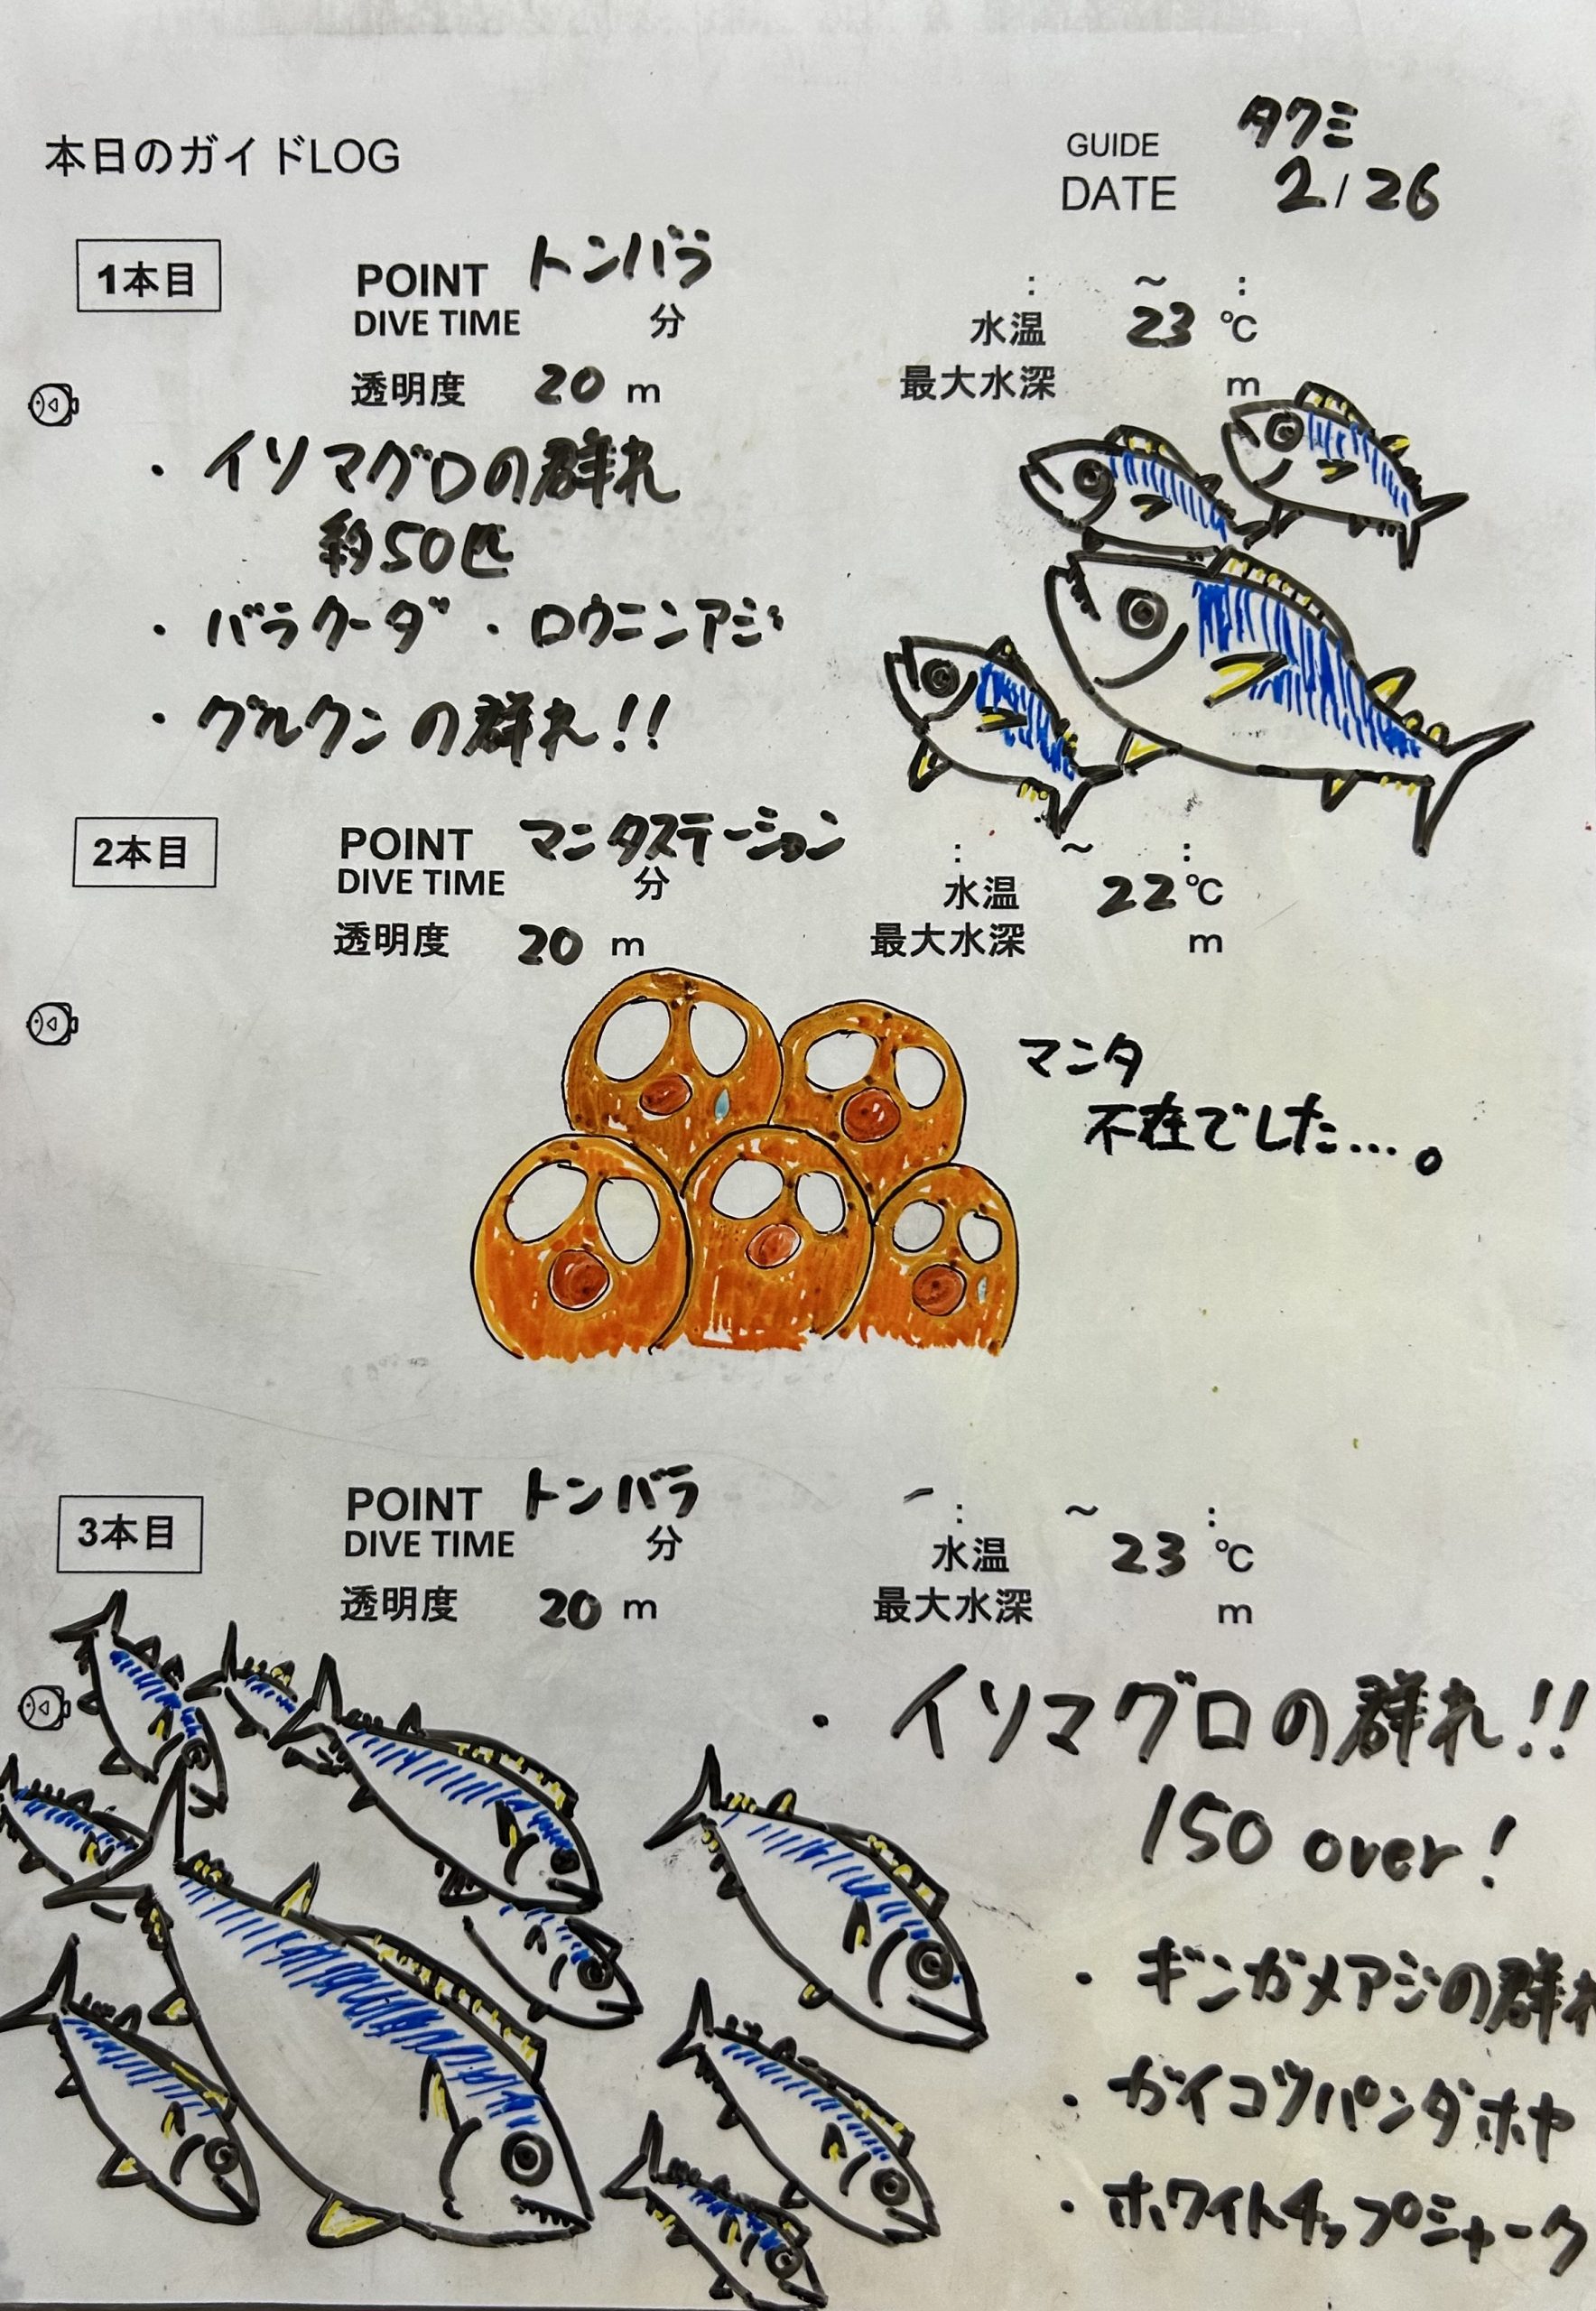 本日のガイドLOG
GUIDE タクミ
DATE 2/26
1本目
POINT トンバラ : ~ :
DIVE TIME 分 水温 23 ℃
透明度 20 m 最大水深 m
・イソマグロの群れ
約50匹
・バラクーダ ・ロウニンアジ
・グルクンの群れ!!
2本目
POINT マンタステーション : ~ :
DIVE TIME 分 水温 22 ℃
透明度 20 m 最大水深 m
マンタ
不在でした…。
3本目
POINT トンバラ : ~ :
DIVE TIME 分 水温 23 ℃
透明度 20 m 最大水深 m
・イソマグロの群れ!!
150 over!
・ギンガメアジの群れ
・ガイコツパンダホヤ
・ホワイトチップシャーク